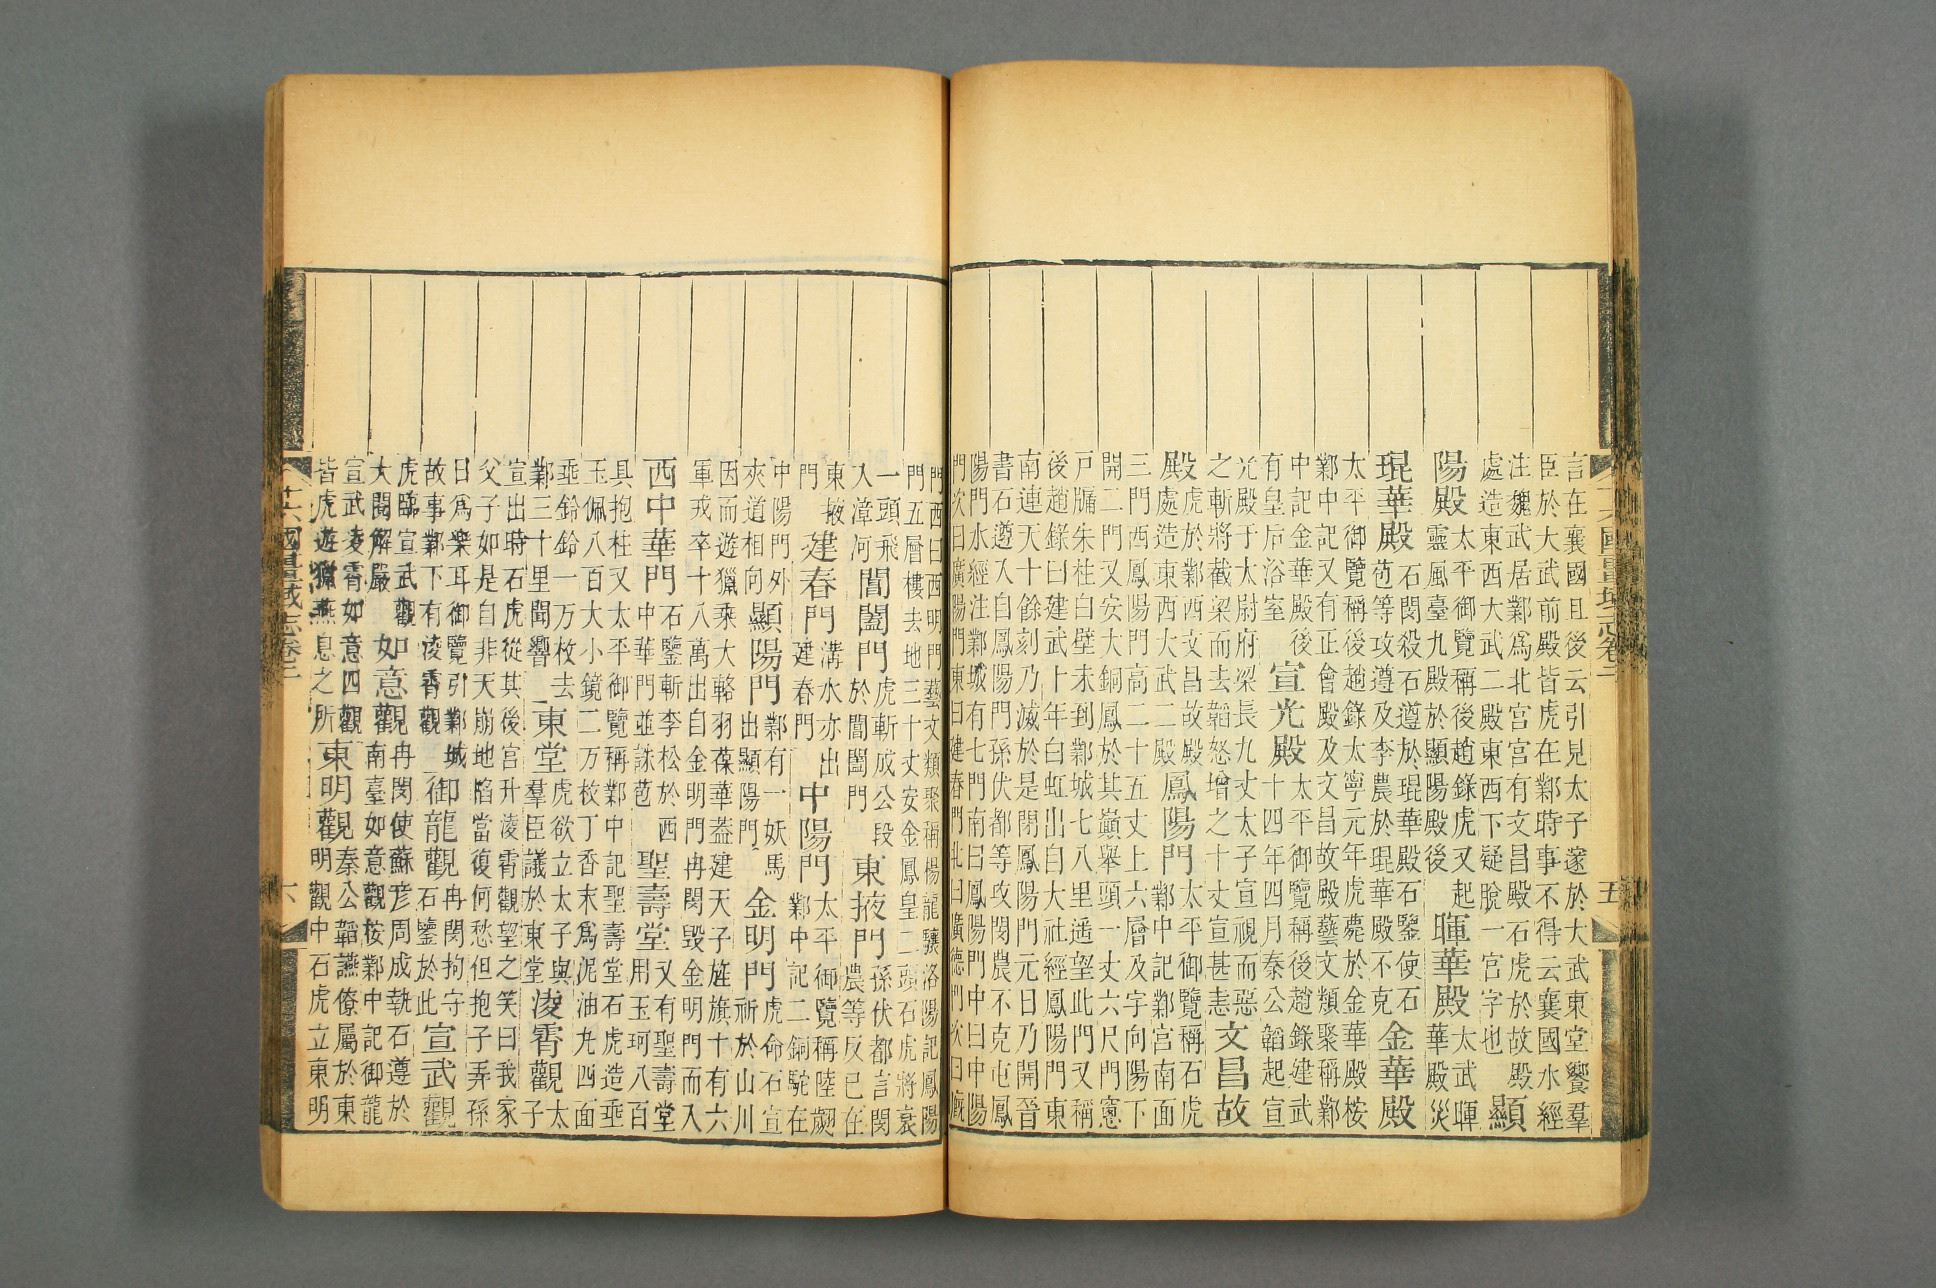 言在襄國且後云引見太子邃於大武東堂饗羣
臣於大武前殿皆虎在鄴時事不得云襄國水經
注魏武居鄴爲北宮宮有文昌殿石虎於故殿
處造東西大武二殿東西下疑脫一宮字也
顯
陽殿
太平御覽稱後趙錄虎又起
靈風臺九殿於顯陽殿後
暉華殿
太武暉
華殿災
琨華殿
石閔殺石遵於琨華殿石鑒使石
苞等攻遵及李農於琨華殿不克
金華殿
太平御覽稱後趙錄太寧元年虎薨於金華殿桉
鄴中記又有正會殿及文昌故殿藝文類聚稱鄴
中記金華殿後
有皇后浴室
宣光殿
太平御覽稱後趙錄建武
十四年四月秦公韜起宣
光殿于太尉府梁長九丈太子宣視而惡
之斬將截梁而去韜怒增之十丈宣甚恚
文昌故
殿
虎於鄴西文昌故殿
處造東西大武二殿
鳳陽門
太平御覽稱石虎
鄴中記鄴宮南面
三門西鳳陽門高二十五丈上六層及宇向陽下
開二門又安大銅鳳於其巔舉頭一丈六尺門窻
戸牖朱柱白壁未到鄴城七八里遥望此門又稱
後趙錄曰建武十年白虹出自大社經鳳陽門東
南連天十餘刻乃滅於是閉鳳陽門元日乃開晉
書石遵入自鳳陽門孫伏都等攻閔農不克屯鳳
陽門水經注鄴城有七門南曰鳳陽門中曰中陽
門次曰廣陽門東曰建春門北曰廣德門次曰廐
門西曰西明門藝文類聚稱楊龍驤洛陽記鳳陽
門五層樓去地三十丈安金鳳皇二頭石虎將衰
一頭飛
入漳河
閶闔門
虎斬成公段
於閶闔門
東掖門
孫伏都言閔
農等反已在
東掖
門
建春門
溝水亦出
建春門
中陽門
太平御覽稱陸翽
鄴中記二銅駝在
中陽門外
夾道相向
顯陽門
鄴有一妖馬
出顯陽門
金明門
虎命石宣
祈於山川
因而遊獵乘大輅羽葆華葢建天子旌旗十有六
軍戎卒十八萬出自金明門冉閔毀金明門而入
西中華門
石鑒斬李松於西
中華門並誅苞
聖壽堂
又有聖壽堂
用玉珂八百
具抱柱又太平御覽稱鄴中記聖壽堂石虎造垂
玉佩八百大小鏡二万枚丁香末爲泥油九四面
垂鈴鈴一万枚去
鄴三十里聞響
東堂
虎欲立太子與
羣臣議於東堂
凌霄觀
太
子
宣出時石虎從其後宮升淩霄觀望之笑曰我家
父子如是自非天崩地陷當復何愁但抱子弄孫
日爲樂耳御覽引鄴城
故事鄴下有淩霄觀
御龍觀
冉閔拘守
石鑒於此
宣武觀
虎臨宣武觀
大閱解嚴
如意觀
冉閔使蘇彦周成執石遵於
南臺如意觀桉鄴中記御龍
宣武淩霄如意四觀
皆虎遊獵燕息之所
東明觀
秦公韜讌僚屬於東
明觀中石虎立東明
十六國畺域志卷二
五
十六國畺域志卷二
六